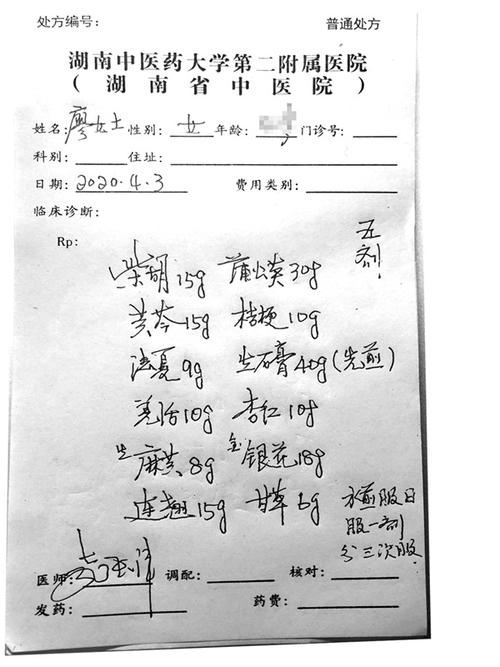 处方编号： 普通处方
湖南中医药大学第二附属医院
（湖南省中医院）
姓名：廖女士 性别：女 年龄： 门诊号：
科别： 住址：
日期：2020.4.3 费用类别：
临床诊断：
Rp： 五剂
柴胡15g 蒲公英30g
黄芩15g 桔梗10g
法夏9g 生石膏40g（先煎）
羌活10g 杏仁10g
生麻黄8g 金银花18g
连翘15g 甘草6g
水煎服日
服一剂
分三次服
医师： 调配： 核对：
发药： 药费：